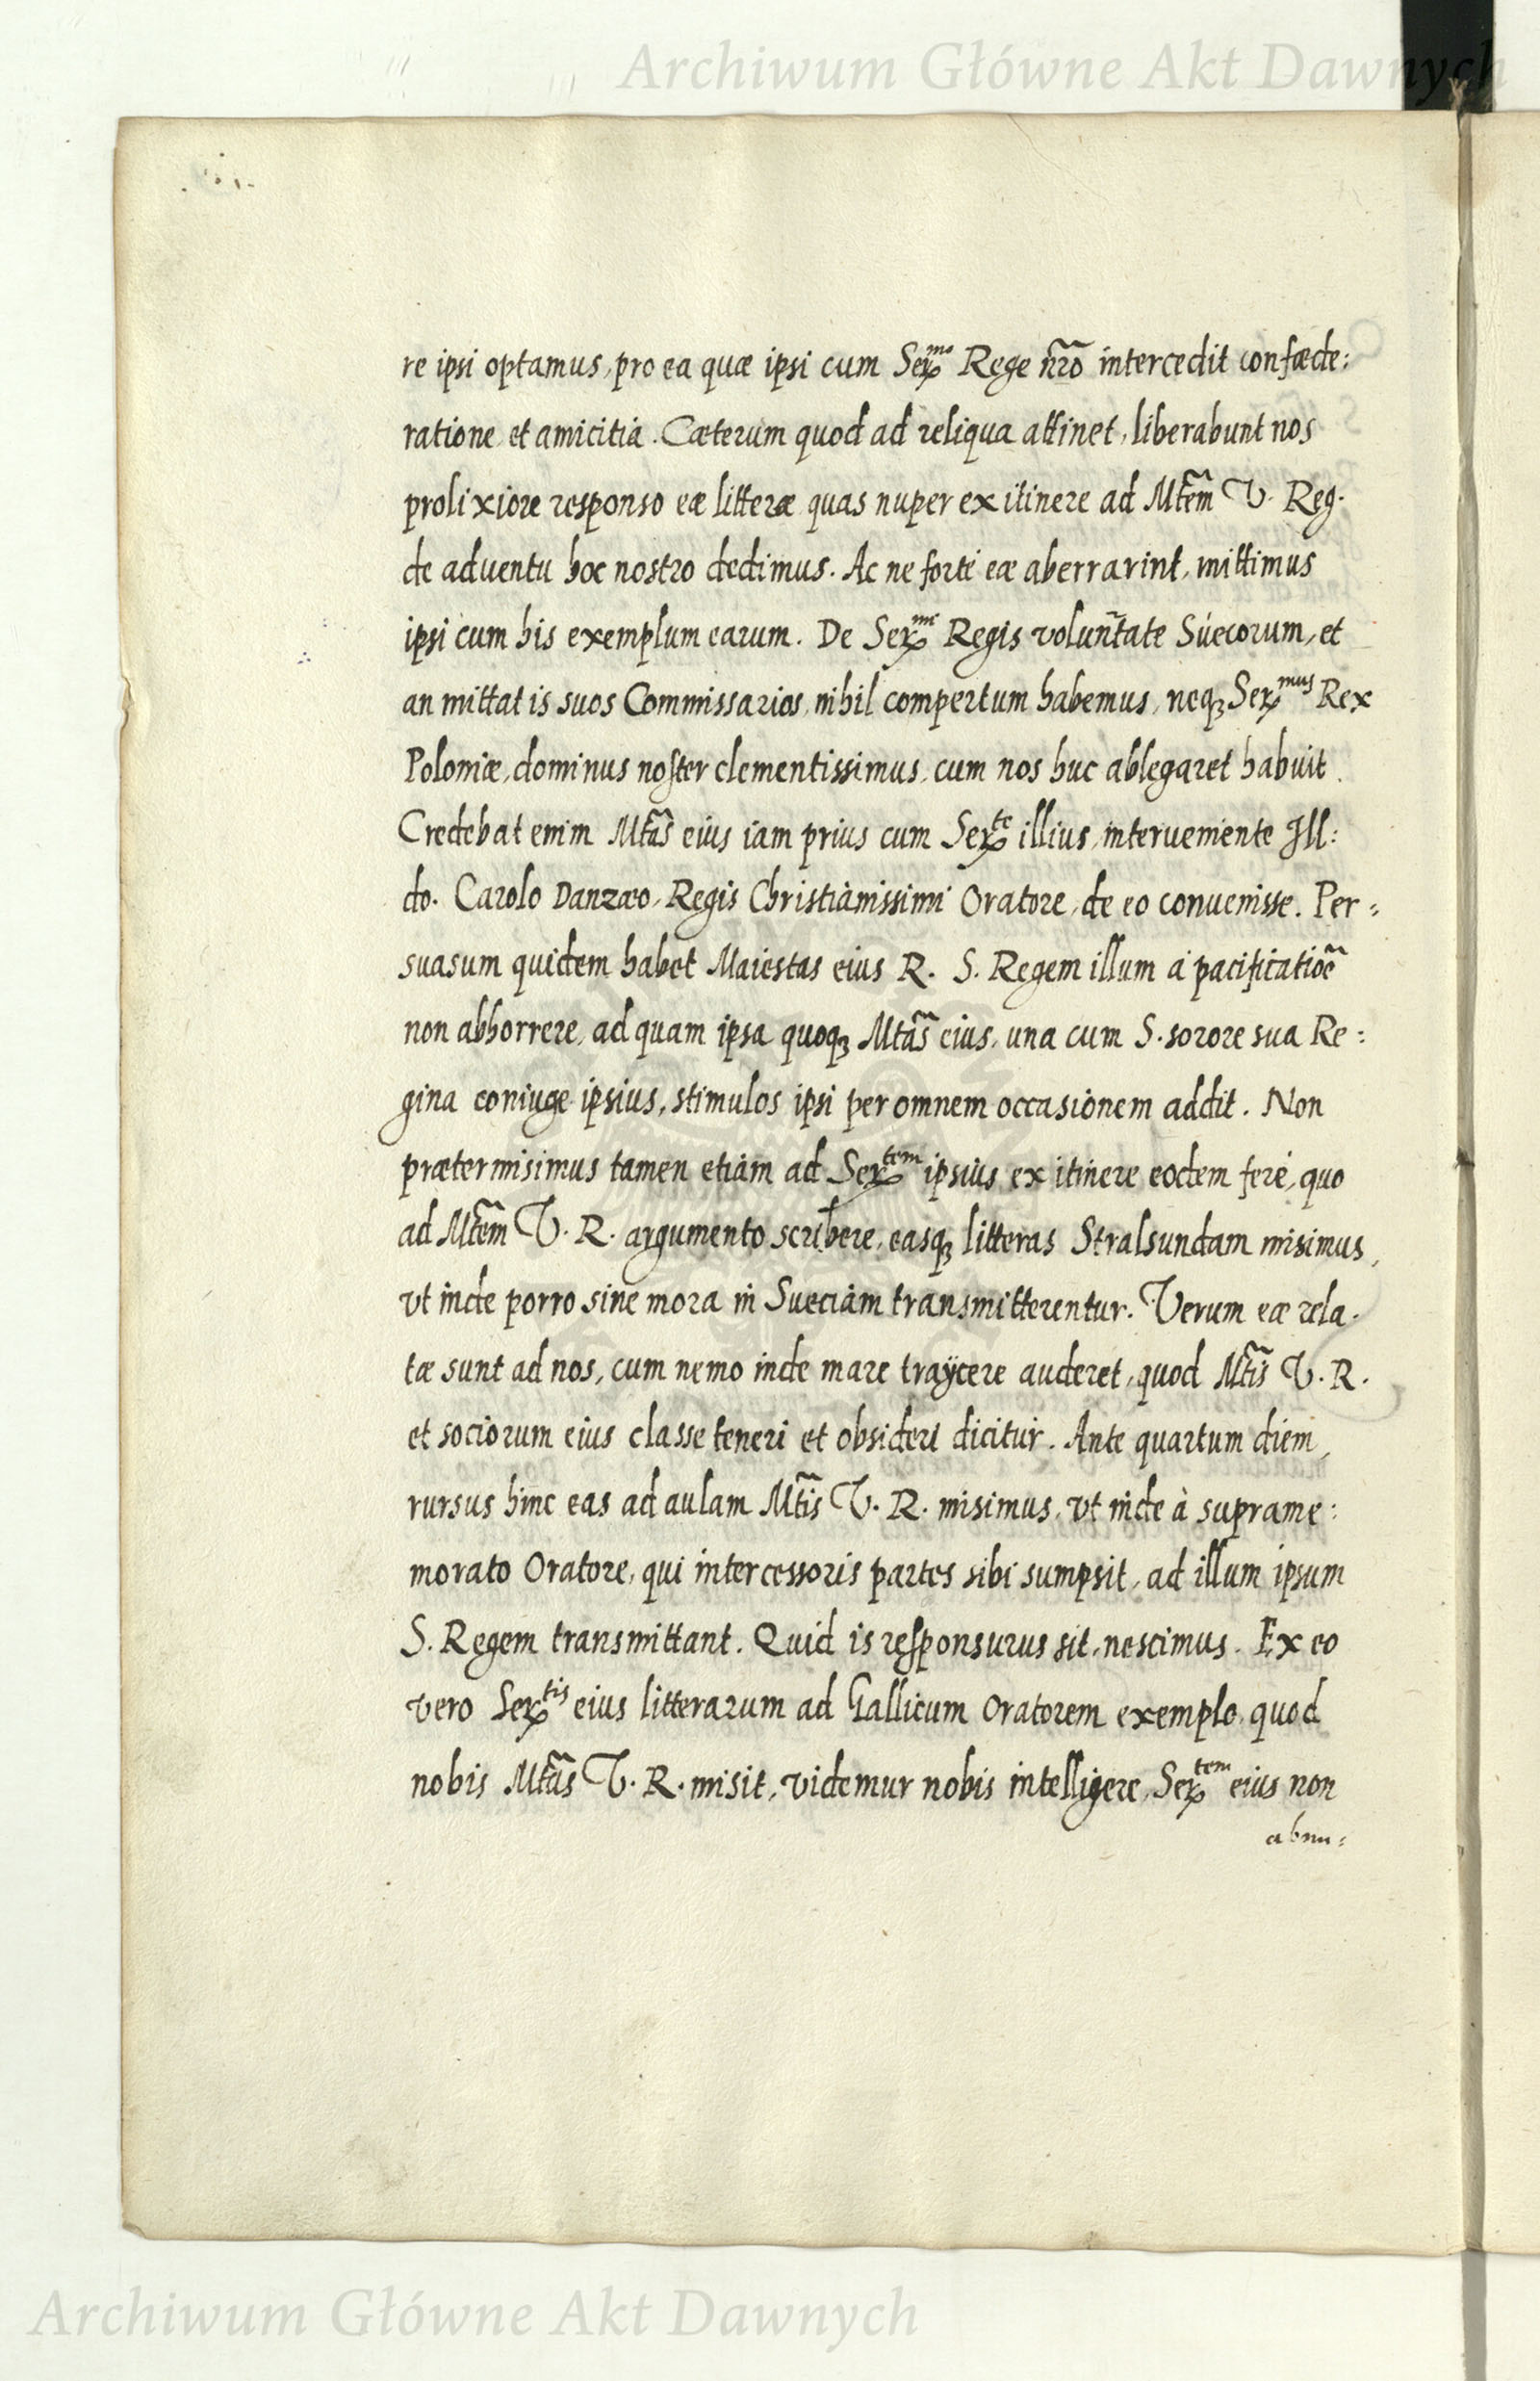 Archiwum Główne Akt Dawnych
re ipsi optamus, pro ea quæ ipsi cum Ser^mo Rege nr̃o intercedit confæde:
ratione et amicitia. Cæterum quod ad reliqua attinet, liberabunt nos
prolixiore responso eæ litteræ quas nuper ex itinere ad Mtẽm V. Reg.
de aduentu hoc nostro dedimus. Ac ne forte eæ aberrarint, mittimus
ipsi cum his exemplum earum. De Ser^mi Regis volunt̃ate Suecorum, et
an mittat is suos Commissarios, nihil compertum habemus, neqꝫ Ser^mus Rex
Poloniæ, dominus noster clementissimus, cum nos huc ablegaret habuit.
Credebat enim Mtãs eius iam prius cum Ser^te illius, interueniente Ill:
do. Carolo Danzæo, Regis Christianissimi Oratore, de eo conuenisse. Per:
suasum quidem habet Maiestas eius R. S. Regem illum à pacificatiõe
non abhorrere, ad quam ipsa quoqꝫ Mtãs eius, una cum S. sorore sua Re:
gina coniuge ipsius, stimulos ipsi per omnem occasionem addit. Non
prætermisimus tamen etiam ad Ser^tem ipsius ex itinere eodem ferè, quo
ad Mtẽm V. R. argumento scribere, easqꝫ litteras Stralsundam misimus,
vt inde porro sine mora in Sueciam transmitterentur. Verum eæ rela.
tæ sunt ad nos, cum nemo inde mare traÿcere auderet, quod Mtĩs V. R.
et sociorum eius classe teneri et obsideri dicitur. Ante quartum diem,
rursus hinc eas ad aulam Mtĩs V. R. misimus, vt inde à suprame:
morato Oratore, qui intercessoris partes sibi sumpsit, ad illum ipsum
S. Regem transmittant. Quid is responsurus sit, nescimus. Ex eo
vero Ser^tis eius litterarum ad Gallicum Oratorem exemplo, quod
nobis Mtãs V. R. misit, videmur nobis intelligere, Ser^tem eius non
abnu:
Archiwum Główne Akt Dawnych